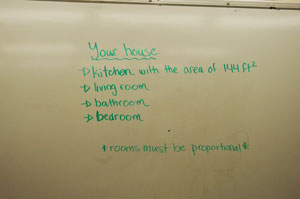 Your house
→ kitchen with the area of 144 ft²
→ living room
→ bathroom
→ bedroom
* rooms must be proportional *